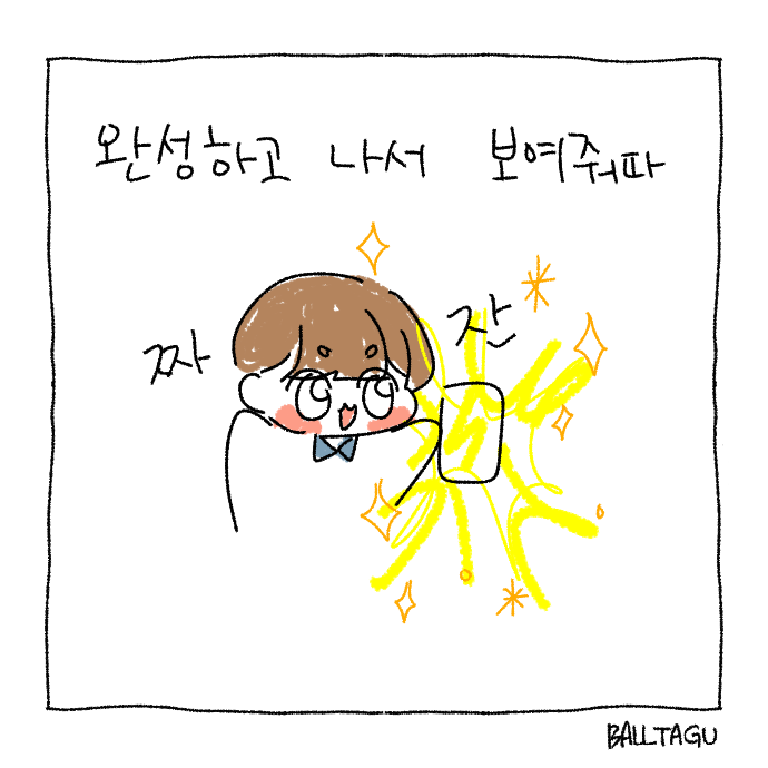 완성하고 나서 보여줘따
짜
잔
BALLTAGU